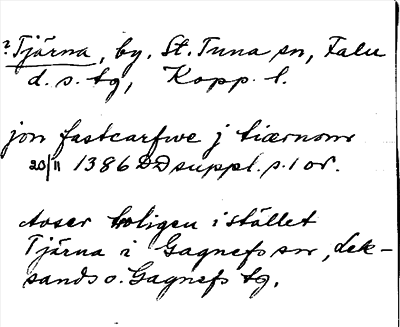 ? Tjärna, by. St. Tuna sn, Falu
d. s. tg, Kopp. l.
jon fastcarfwe j tiærnom
20/11 1386 DD suppl. s. 1 or.
Avser troligen i stället
Tjärna i Gagnefs sn, Lek-
sands o. Gagnefs tg.